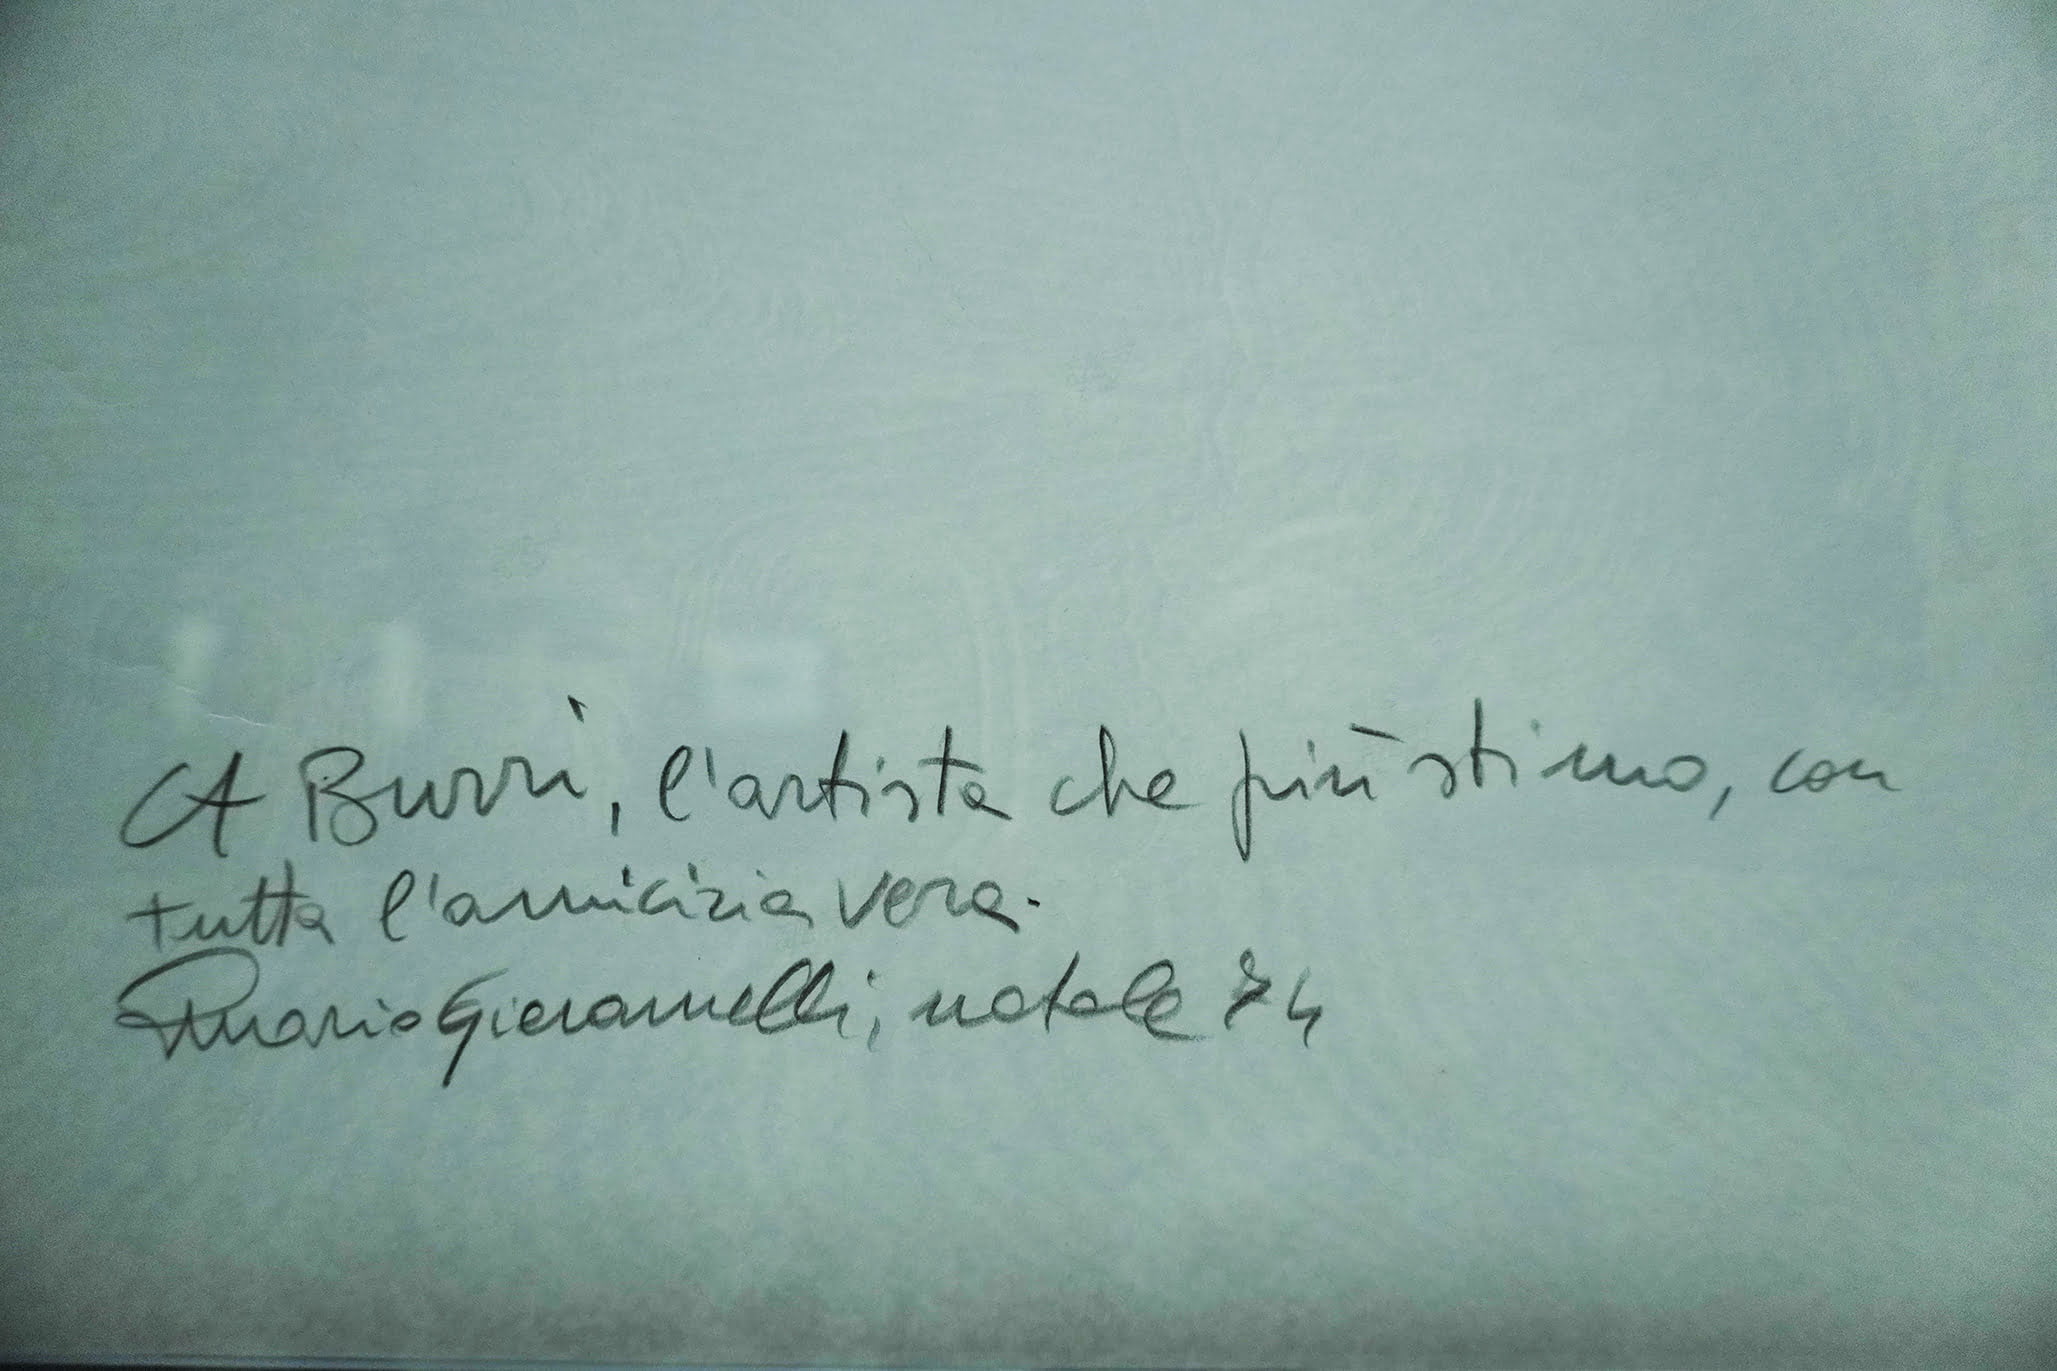 A Burri, l'artista che più stimo, con
tutta l'amicizia vera.
Mario Giacomelli, natale 74